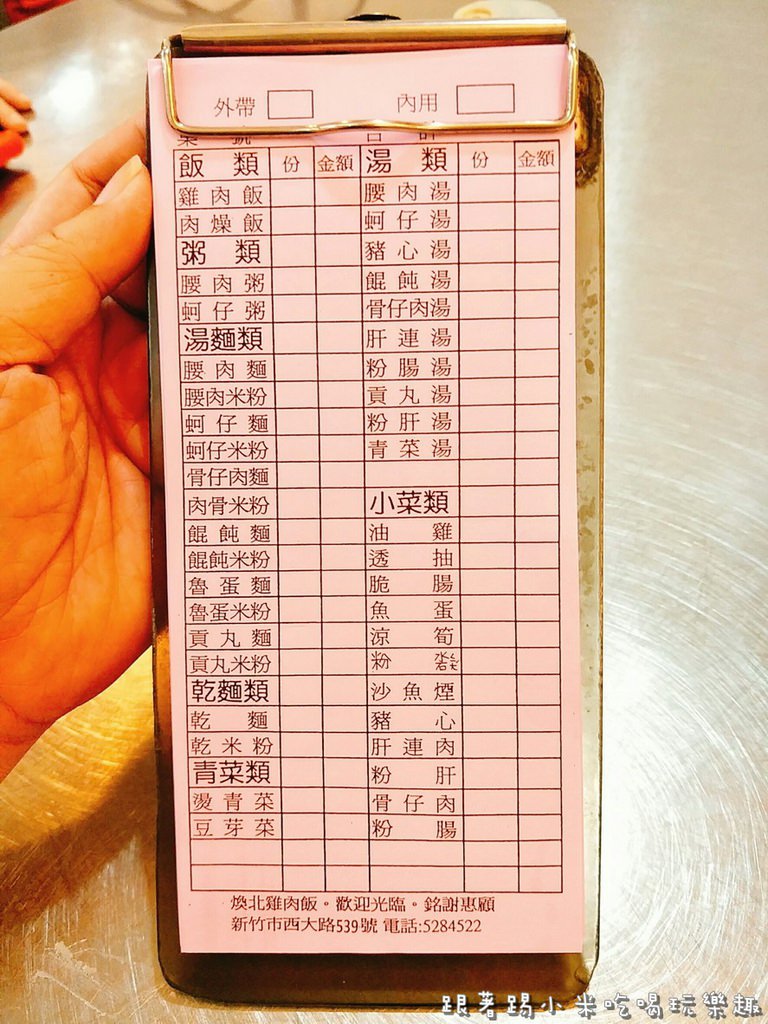 外帶 內用
飯類 份 金額 湯類 份 金額
雞肉飯 腰肉湯
肉燥飯 蚵仔湯
粥類 豬心湯
腰肉粥 餛飩湯
蚵仔粥 骨仔肉湯
湯麵類 肝連湯
腰肉麵 粉腸湯
腰肉米粉 貢丸湯
蚵仔麵 粉肝湯
蚵仔米粉 青菜湯
骨仔肉麵
肉骨米粉 小菜類
餛飩麵 油雞
餛飩米粉 透抽
魯蛋麵 脆腸
魯蛋米粉 魚蛋
貢丸麵 涼筍
貢丸米粉 粉
乾麵類 沙魚煙
乾麵 豬心
乾米粉 肝連肉
青菜類 粉肝
燙青菜 骨仔肉
豆芽菜 粉腸
煥北雞肉飯。歡迎光臨。銘謝惠顧
新竹市西大路539號 電話:5284522
跟著踢小米吃喝玩樂趣